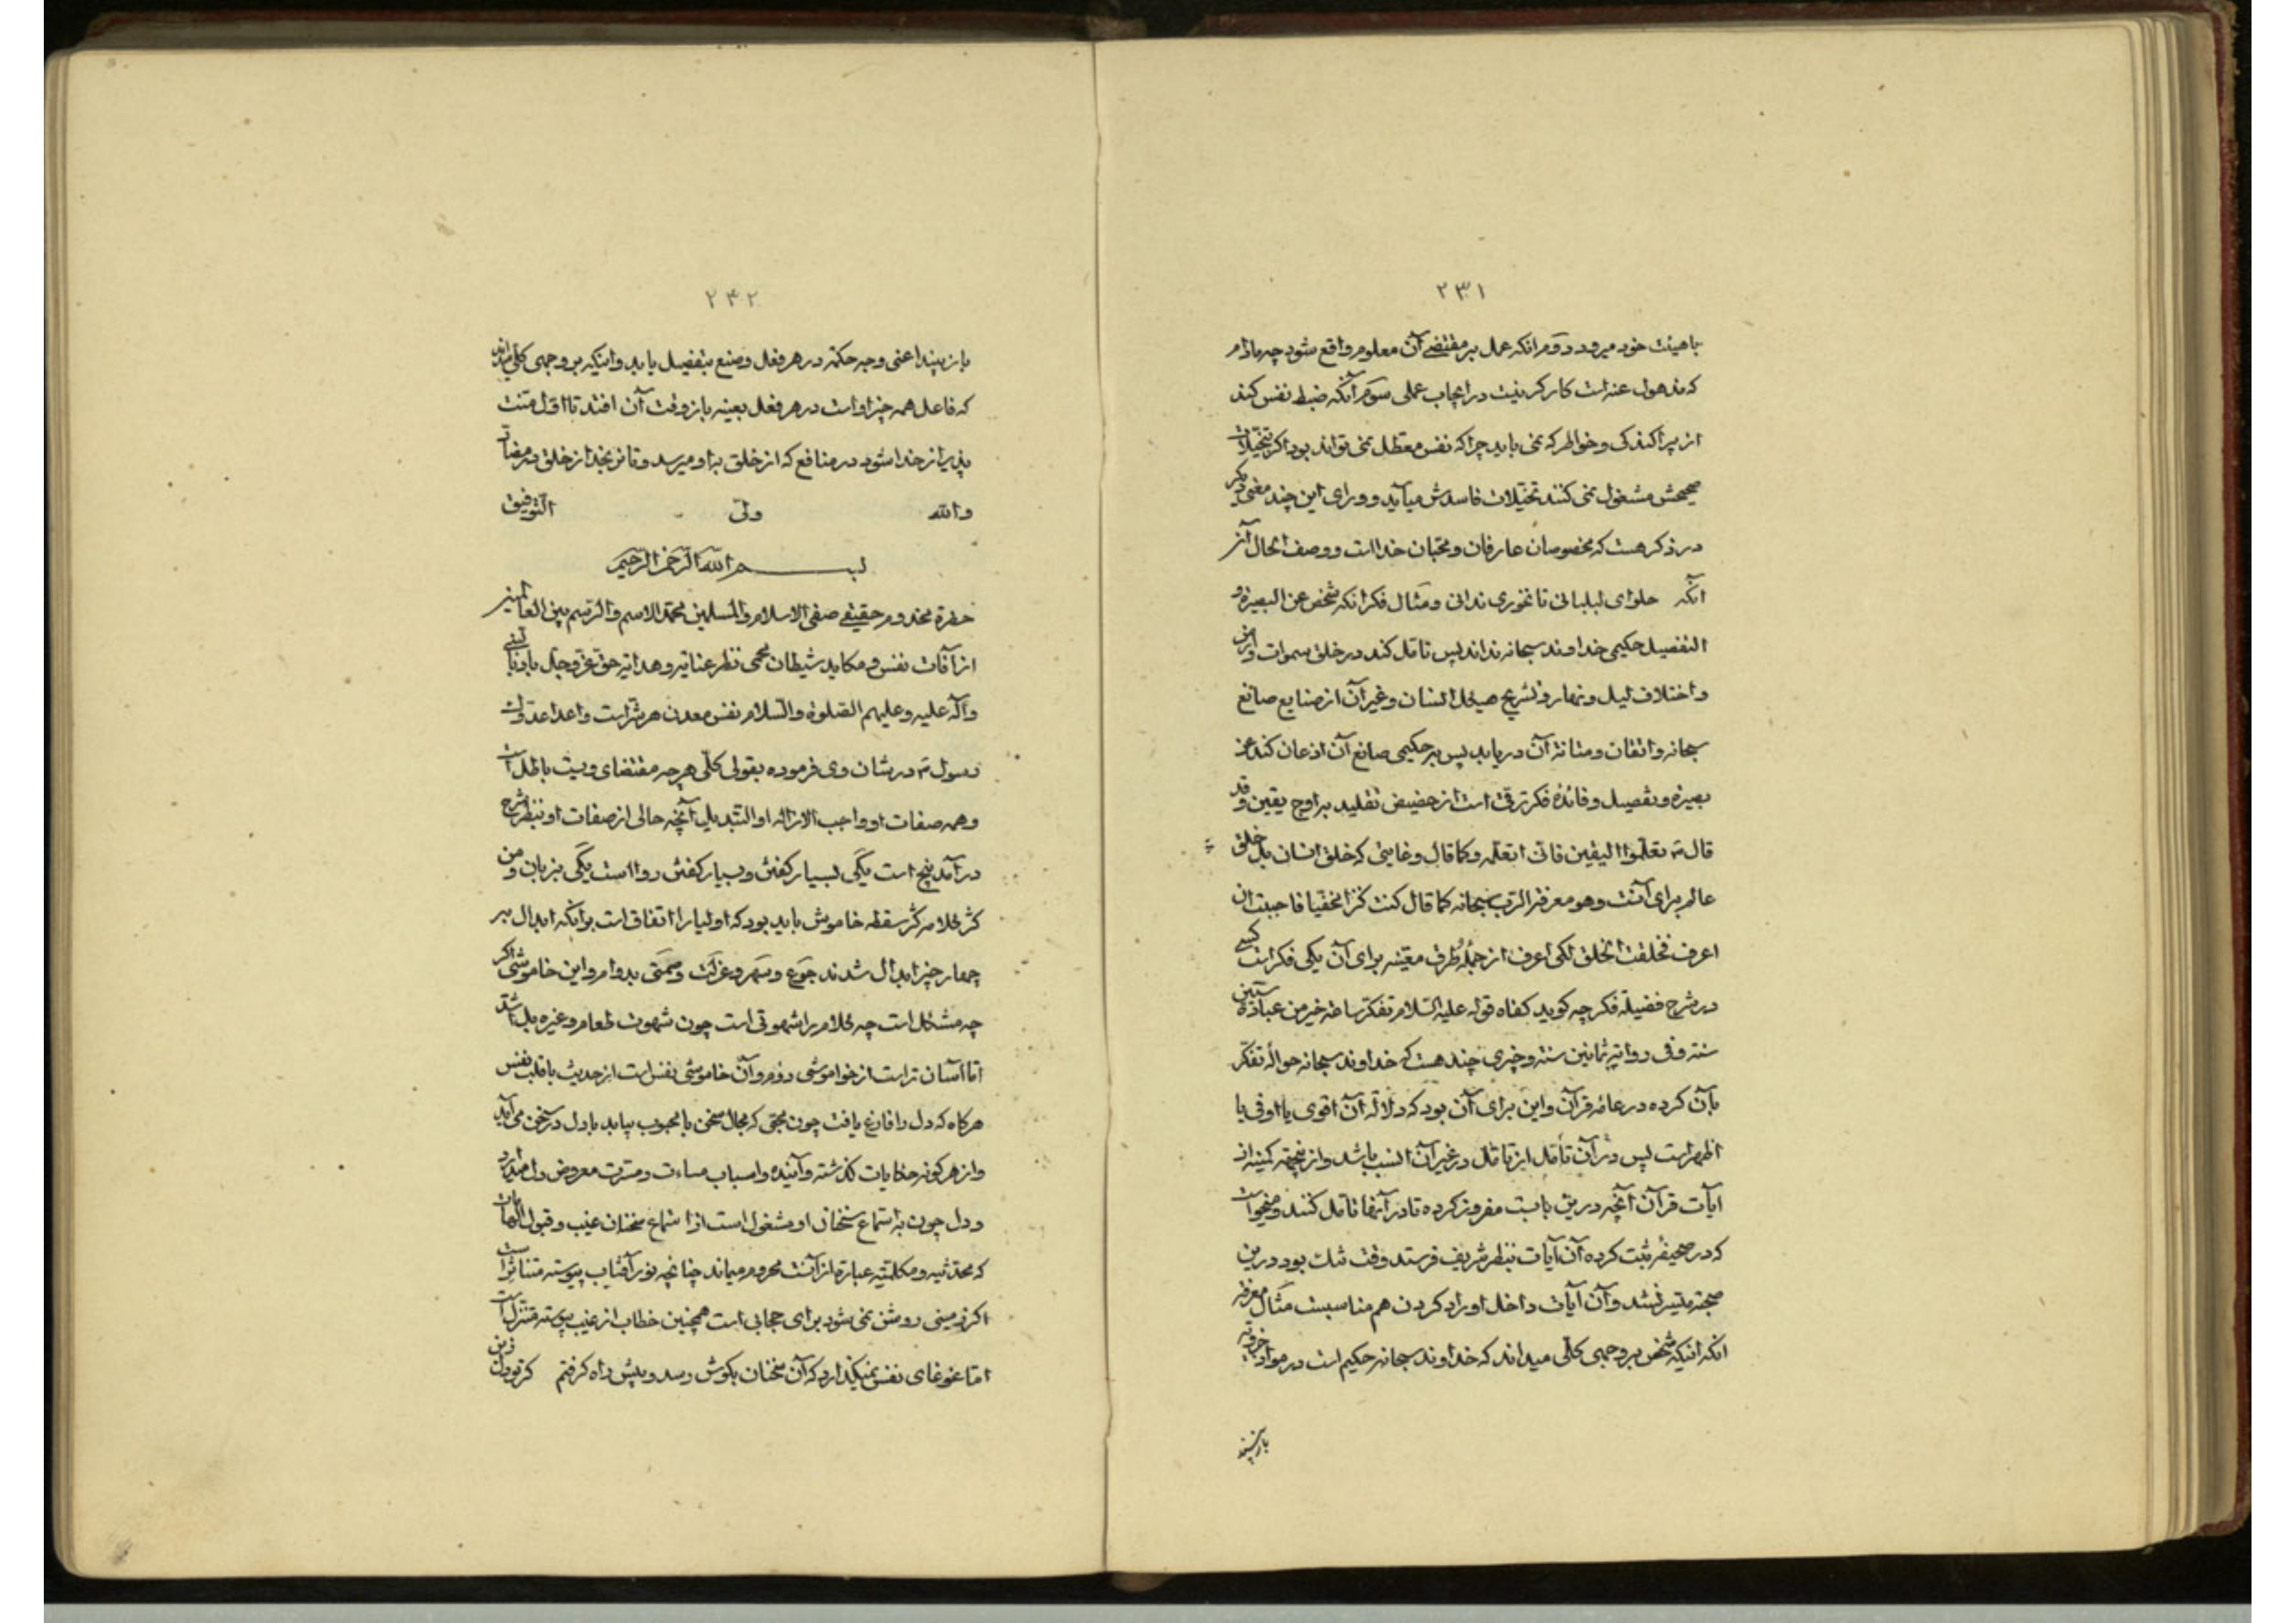 ۲۳۱
باهیئت خود میرود دوم انکه عمل بر مقتضی آن معلوم واقع شود چه مادام
که مذهول عنه است کارکر نیست در ایجاب عملی سوم آنکه ضبط نفس کند
از پراکندکی و خواطر که نمی باید چرا که نفس معطل نمی تواند بود اکر بتخیلات
صحیحش مشغول نمی کنند تخیلات فاسدش میآید و ورای این چند معنی دیکر
در ذکر هست که مخصوصان عارفان و محبان خداست و وصف الحال آنر
آنکه حلوای لبلبانی تا نخوری ندانی و مثال فکر انکه شخص عن البصیرة و
التفصیل حکیمی خداوند سبحانه نداند پس تامل کند در خلق سموات و ارض
و اختلاف لیل و نهار و تشریح هیکل انسان و غیر آن از صنایع صانع
سبحانه و اتقان و متانة آن دریابد پس بر حکیمی صانع آن اذعان کند عن
بصیرة و تفصیل و فائدۀ فکر ترقی است از حضیض تقلید براوج یقین وقد
قال تعلموا الیقین فانی اتعلمه و کما قال و غایتی که خلق انسان بل خلق
عالم برای آنست و هو معرفة الرب سبحانه کما قال کنت کنزا مخفیا فاحببت ان
اعرف فخلقت الخلق لکی اعرف از جمله طرف معینه برای آن یکی فکر است کسی
در شرح فضیلة فکر چه کوید کفاه قوله علیه السلام تفکر ساعة خیر من عبادة ستین
سنة وفی روایة ثمانین سنة و چیزی چند هست که خداوند سبحانه حوالۀ تفکر
بآن کرده در عامۀ قرآن و این برای آن بود که دلالة آن اقوی یا اوفی یا
اظهر است پس در آن تأمل از تامل در غیر آن انسب باشد و ازینجهة کمینه از
آیات قرآن آنچه درین بابست مفروز کرده تا در آنها تامل کنند و میخواست
که در صحیفۀ ثبت کرده آن آیات بنظر شریف فرستد وقت تنک بود درین
صحبة متیسر نشد و آن آیات داخل اوراد کردن هم مناسبست مثال معرفة
انکه اینکه شخص بر وجهی کلی میداند که خداوند سبحانه حکیم است در مواد جزویه
بازبیند
۲۳۲
بازبیند اعنی وجه حکمة در هر فعل و صنع بتفصیل یابد و اینکه بر وجهی کلی میداند
که فاعل همه چیز اوست در هر فعل بعینه باز وقت آن افتد تا اول منت
پذیر از خدا شود در منافع که از خلق باو میرسد و تا نرنجد از خلق در مضات
والله ولی التوفیق
بسم الله الرحمن الرحیم
حضرة مخدوم حقیقی صفی الاسلام والمسلمین محمد الاسم والرسم بین العالمین
از آفات نفس و مکاید شیطان محمی نظر عنایة و هدایة حق عز و جل باد بالنبی
وآله علیه وعلیهم الصلوة والسلام نفس معدن هر شر است و اعدا عدوک
رسول در شان وی فرموده بقولی کلی هرچه مقتضای ویست باطل است
و همه صفات او واجب الازاله او التبدیل آنچه حالی از صفات او بنظر شرح
درآمد پنج است یکی بسیار کفتن و بسیار کفتن رواست یکی بزبان و من
کثر کلامه کثر سقطه خاموش باید بود که اولیا را اتفاق است برآنکه ابدال بر
چهار چیز ابدال شدند جوع و سهر و عزلت و صمتی بدوام و این خاموشی اکر
چه مشکل است چه کلام را شهوتی است چون شهوت طعام و غیره بل اشد
اما آسان تر است از خواموشی دوم و آن خاموشی نفس است از حدیث با قلب نفس
هرکاه که دل را فارغ یافت چون محبی که مجال سخن با محبوب بیابد با دل در سخن می آید
و از هر کونه حکایات کذشته و آینده و اسباب مساءت و مسرت معروض دل میدارد
و دل چون به استماع سخنان او مشغول است از استماع سخنان غیب و قبول الهامات
که محدثیه و مکلمتیه عبارة از آنست محروم میماند چنانچه نور آفتاب پیوسته متناثر است
اکر زمینی روشن نمی شود برای حجابی است همچنین خطاب از غیب پیوسته متنزل است
اما غوغای نفس نمیکذارد که آن سخنان بکوش رسد و پیش راه کرفتم کر تو دل زین